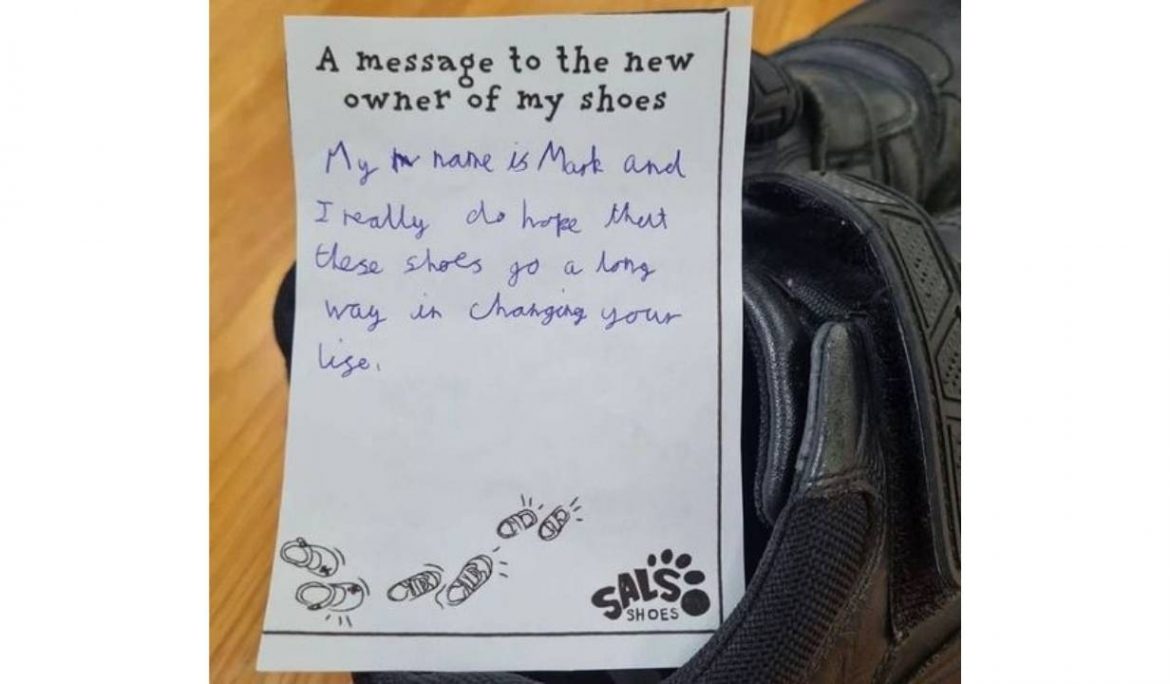 A message to the new
owner of my shoes
My name is Mark and
I really do hope that
these shoes go a long
way in changing your
life.
SALS
SHOES